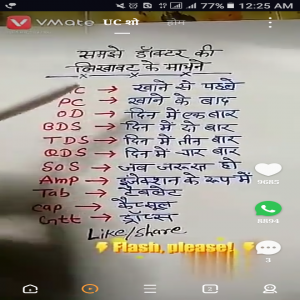 77% 12:25 AM
VMate UC शो होम
समझे डॉक्टर की
लिखावट के मायने
C → खाने से पहले
PC → खाने के बाद
OD → दिन में एक बार
BDS → दिन में दो बार
TDS → दिन में तीन बार
QDS → दिन में चार बार
SOS → जब जरूरत हो
Amp → इंजेक्शन के रूप में
Tab → टेबलेट
Cap → कैप्सूल
Gtt → ड्रॉप्स
Like/Share
Flash, please!
9685
8894
3